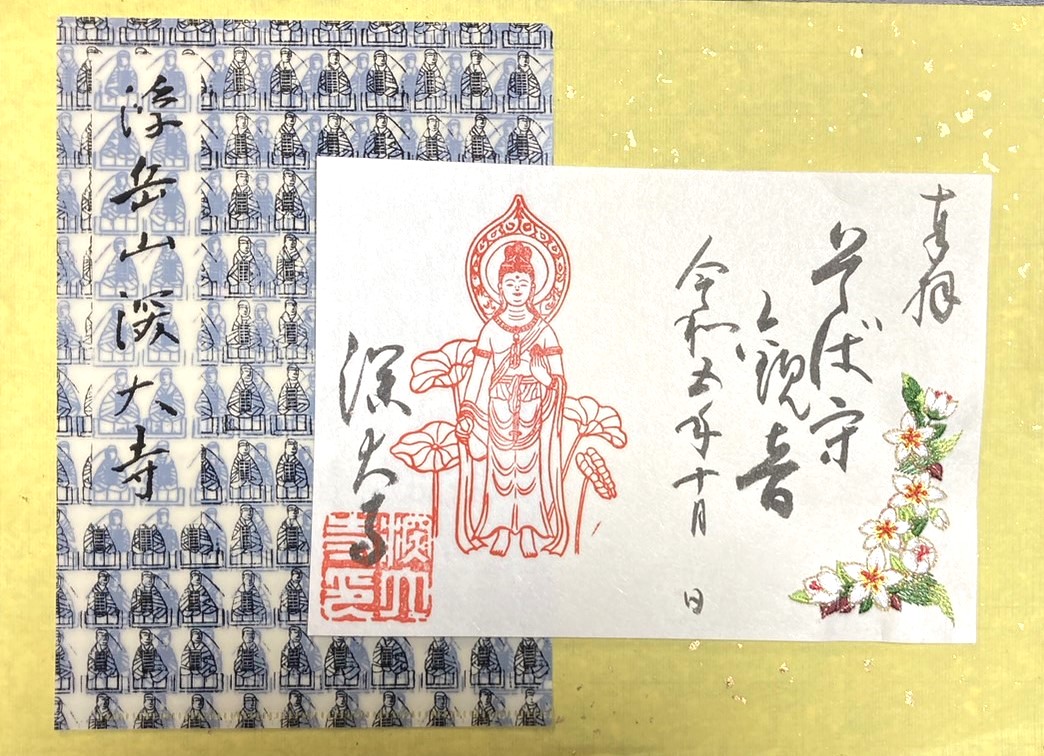 奉拝
そば守
り観音
令和五年十月 日
深大寺
深大寺印
浮岳山深大寺